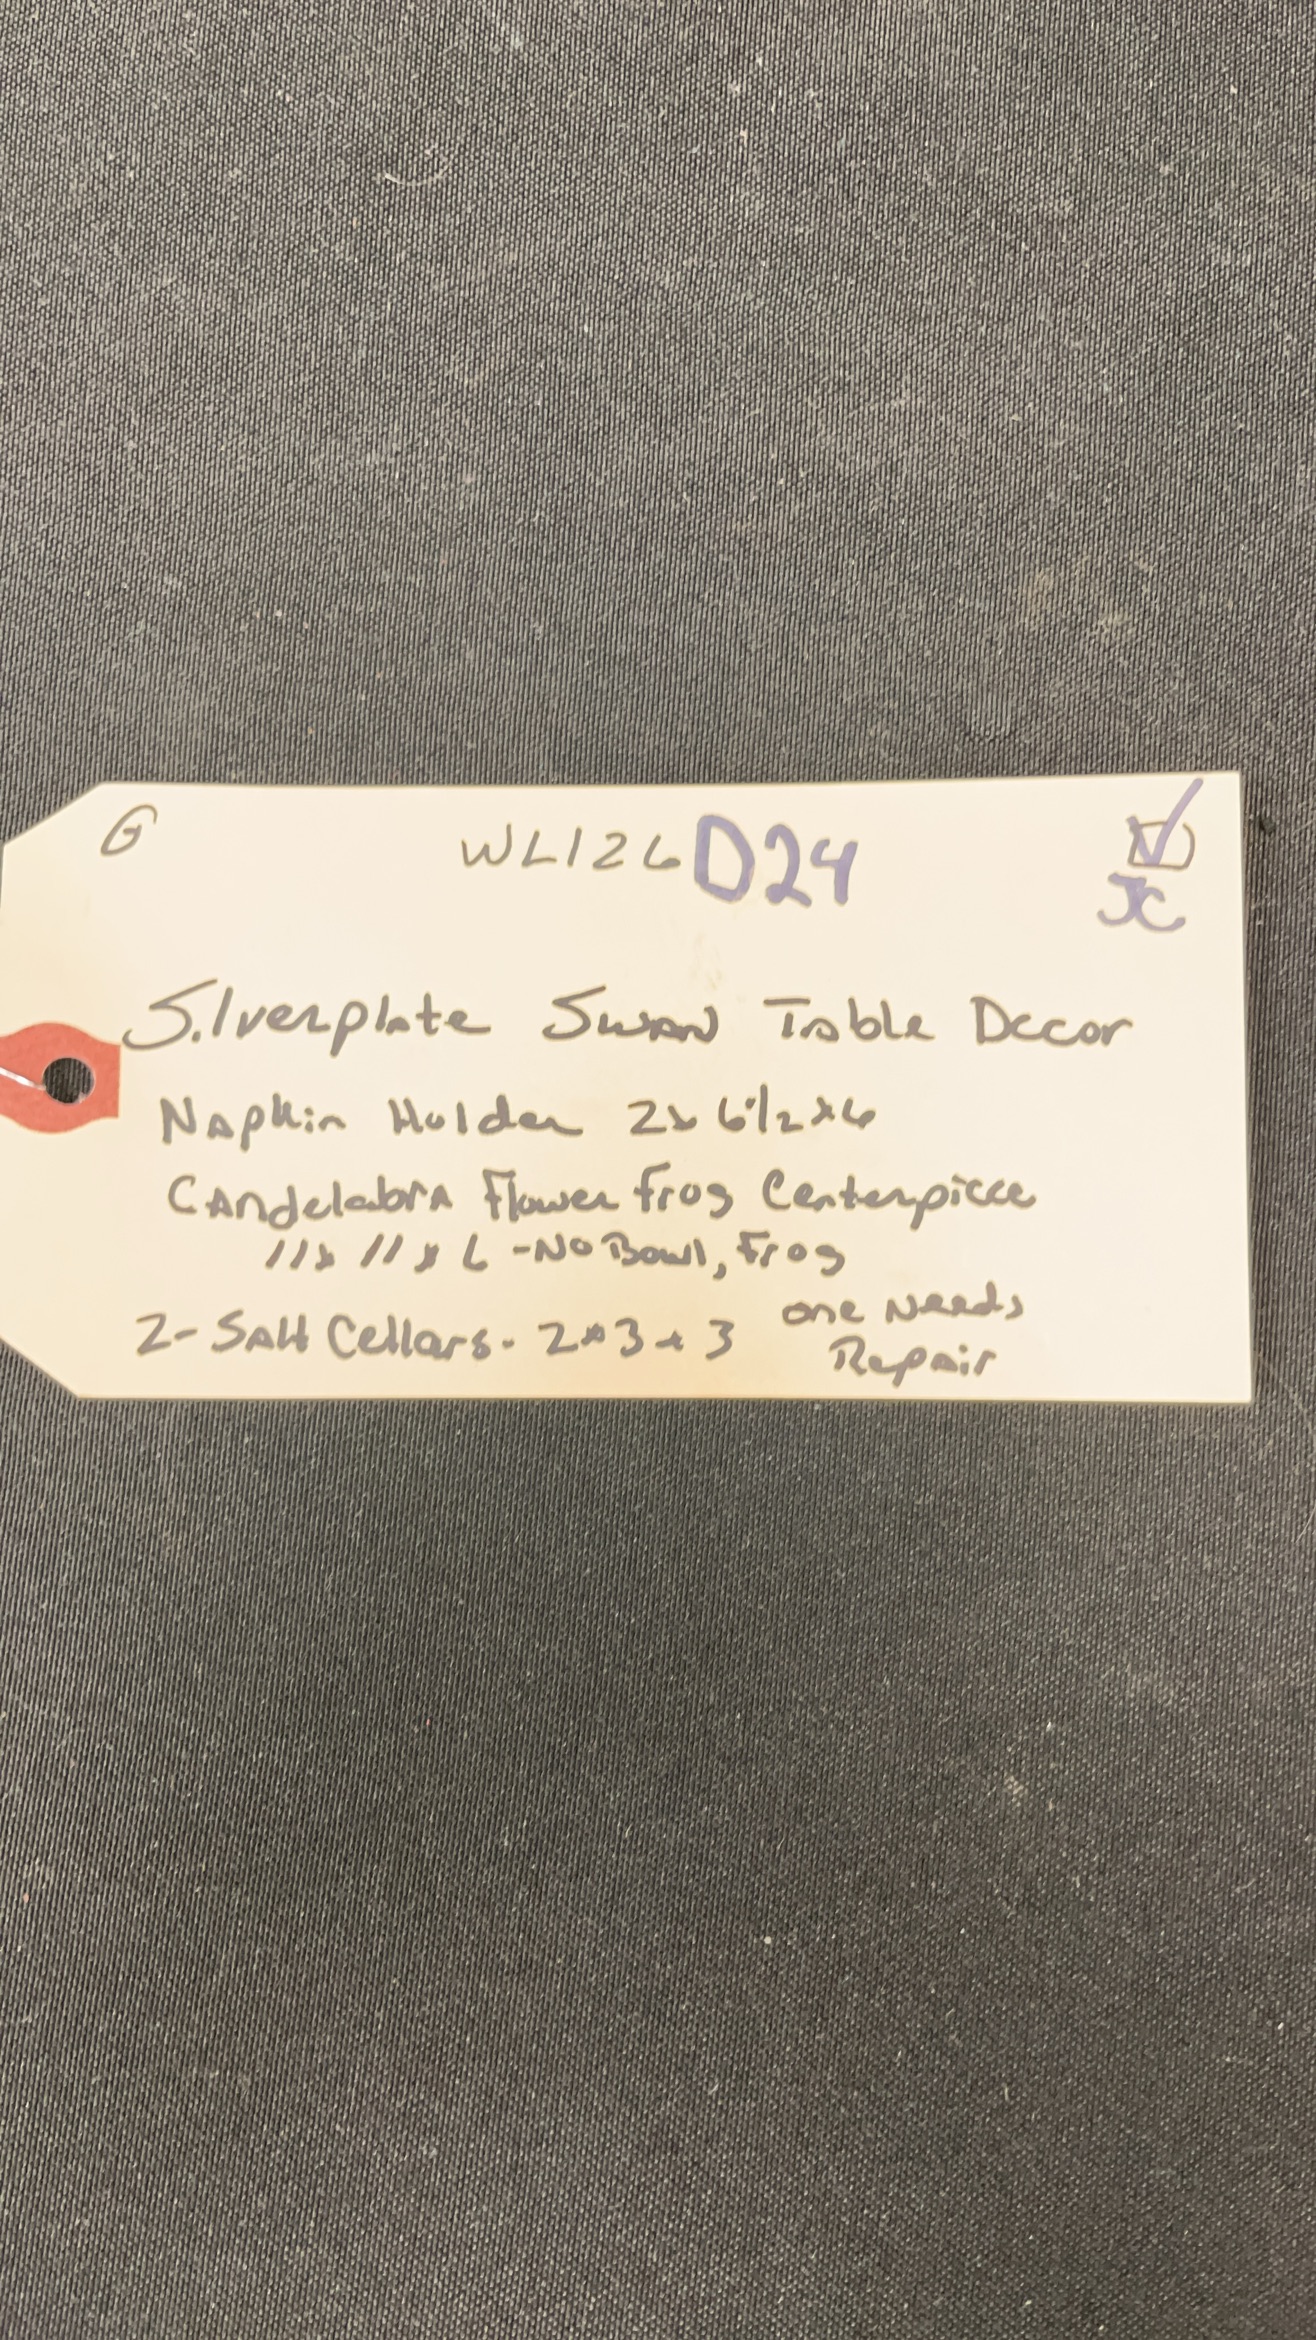 G WL126 D24
JC
Silverplate Swan Table Decor
Napkin Holder 2x6 1/2x6
Candelabra Flower Frog Centerpiece
11x11x6 - No Bowl, Frog
2- Salt Cellars - 2x3x3 one Needs
Repair